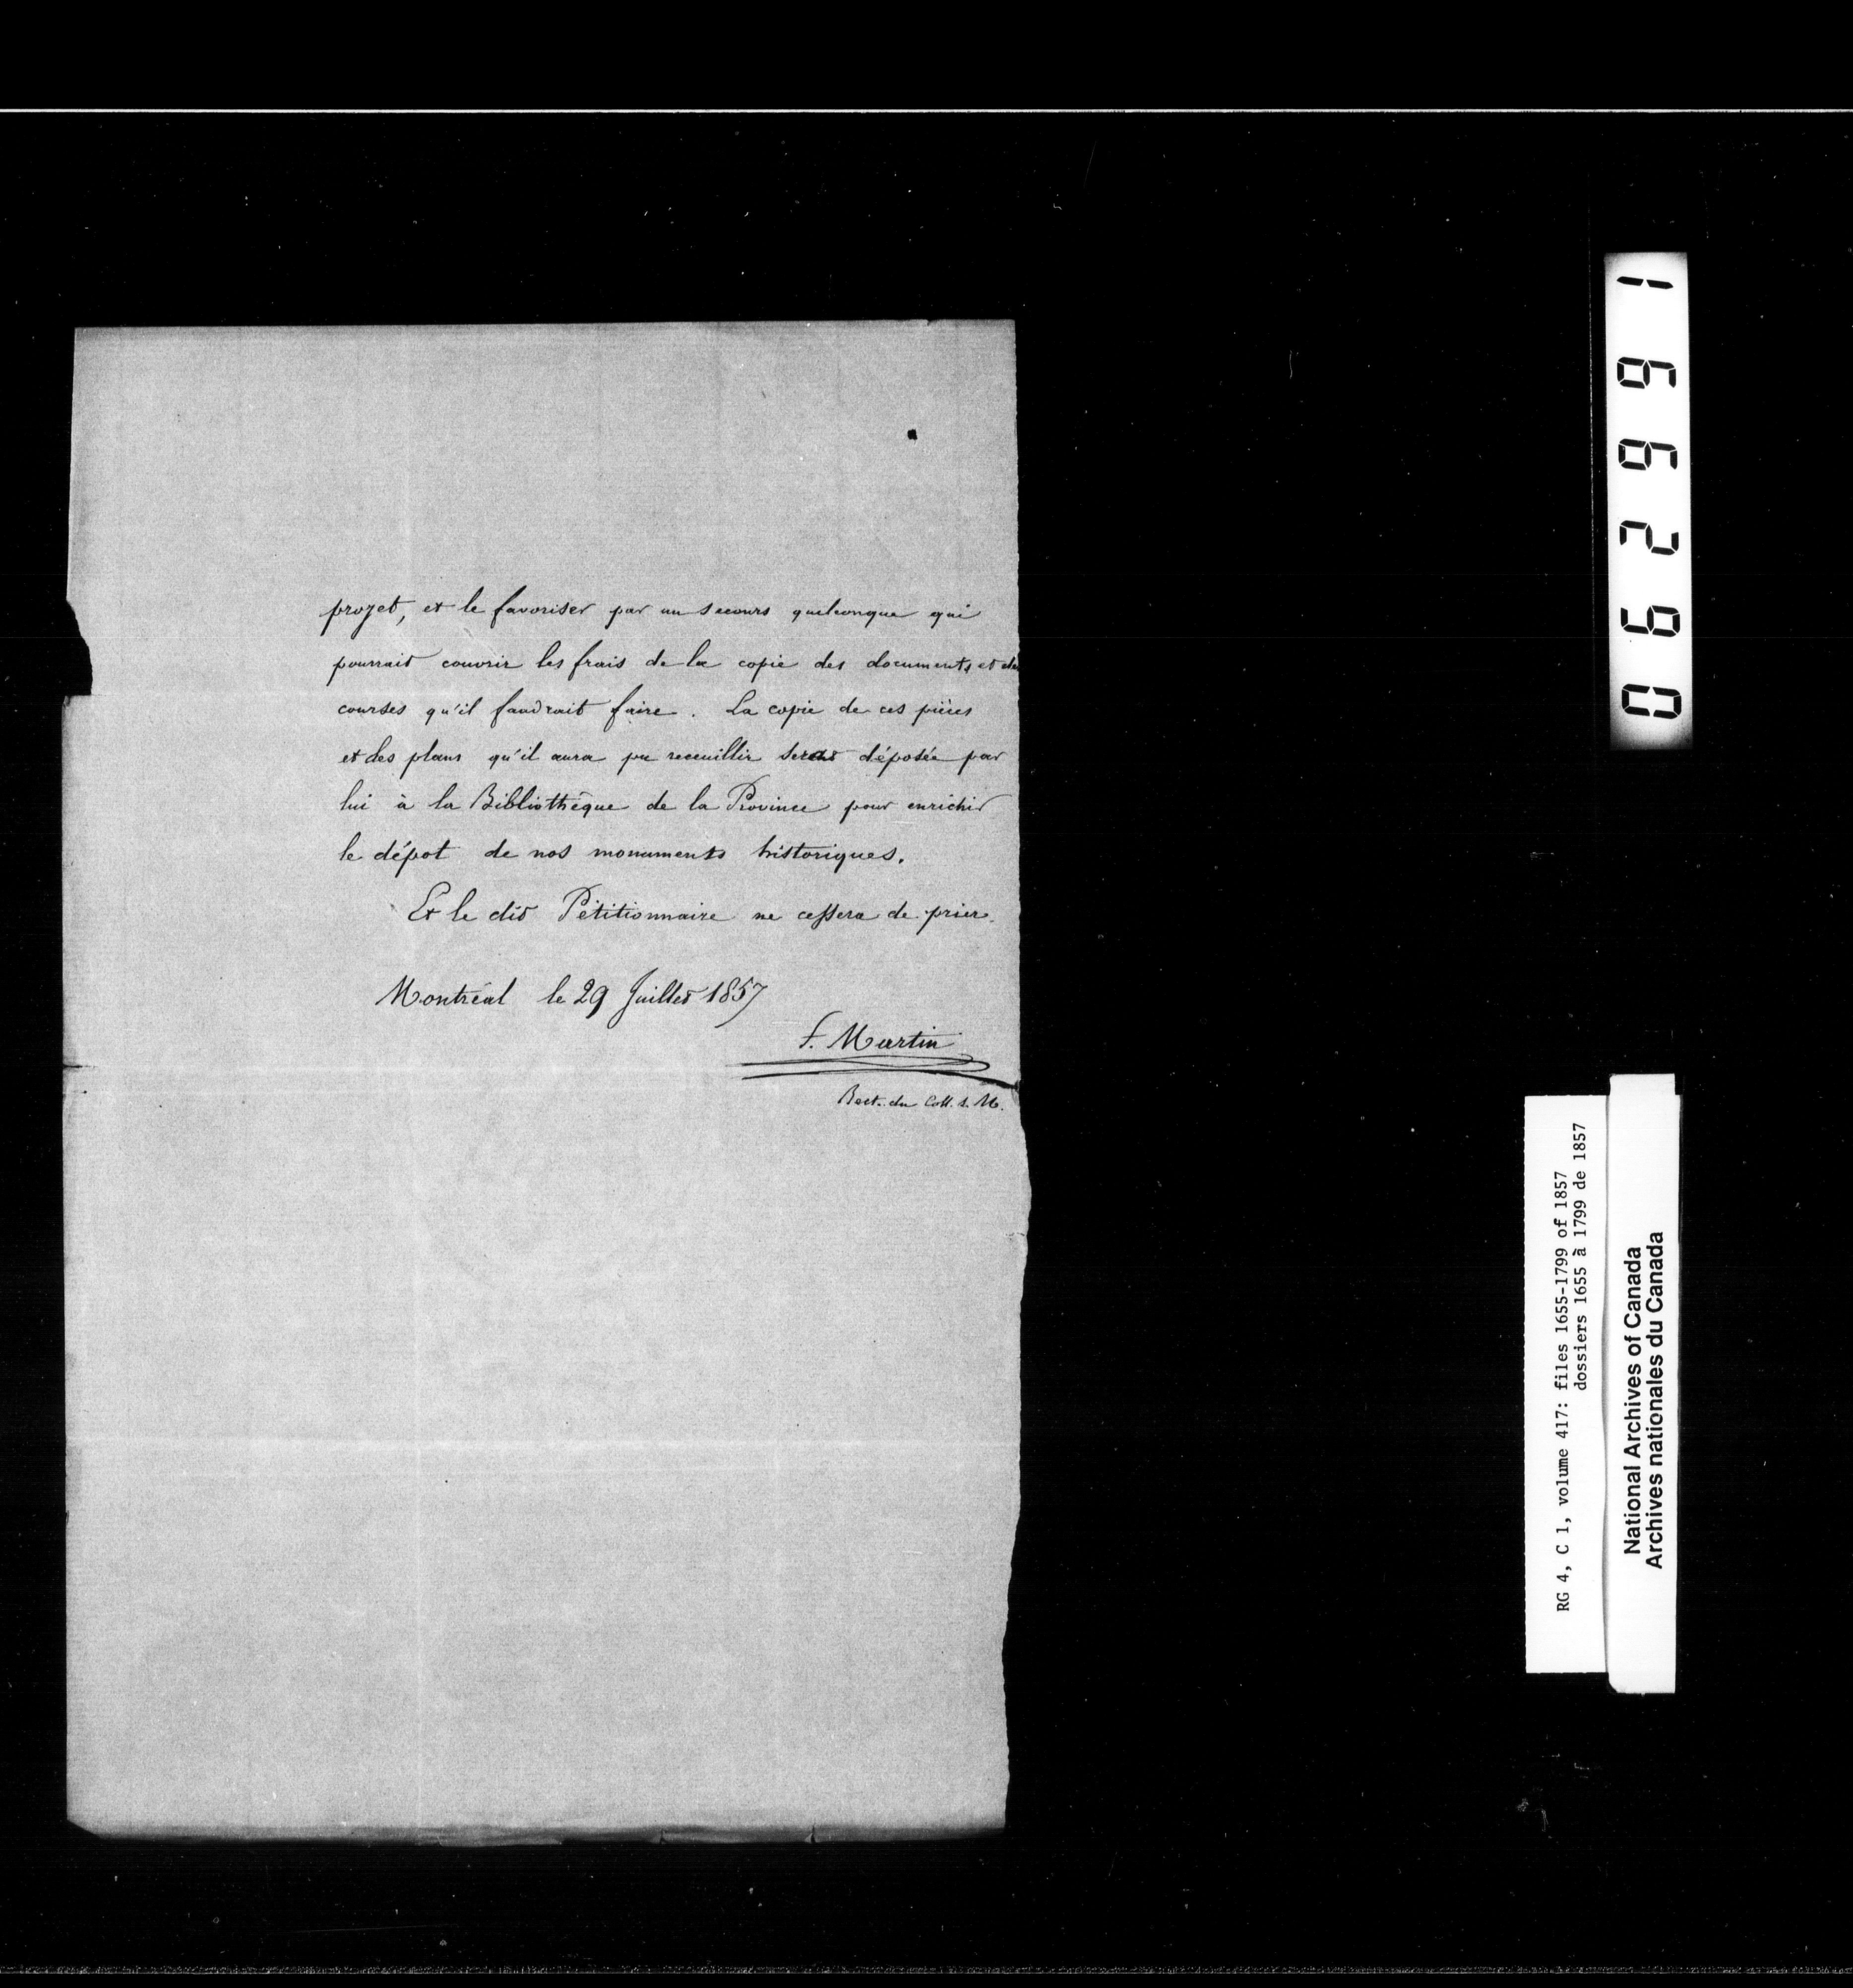 projet, et le favoriser par un secours quelconque qui
pourrait couvrir les frais de la copie des documents et des
courses qu'il faudrait faire. La copie de ces pièces
et des plans qu'il aura pu receuillir sera déposée par
lui à la Bibliothèque de la Province pour enrichir
le dépot de nos monuments historiques.
Et le dit Pétitionnaire ne cessera de prier.
Montréal le 29 Juillet 1857
F. Martin
Rect. du Coll. S. M.
096991
RG 4, C 1, volume 417: files 1655-1799 of 1857
dossiers 1655 à 1799 de 1857
National Archives of Canada
Archives nationales du Canada